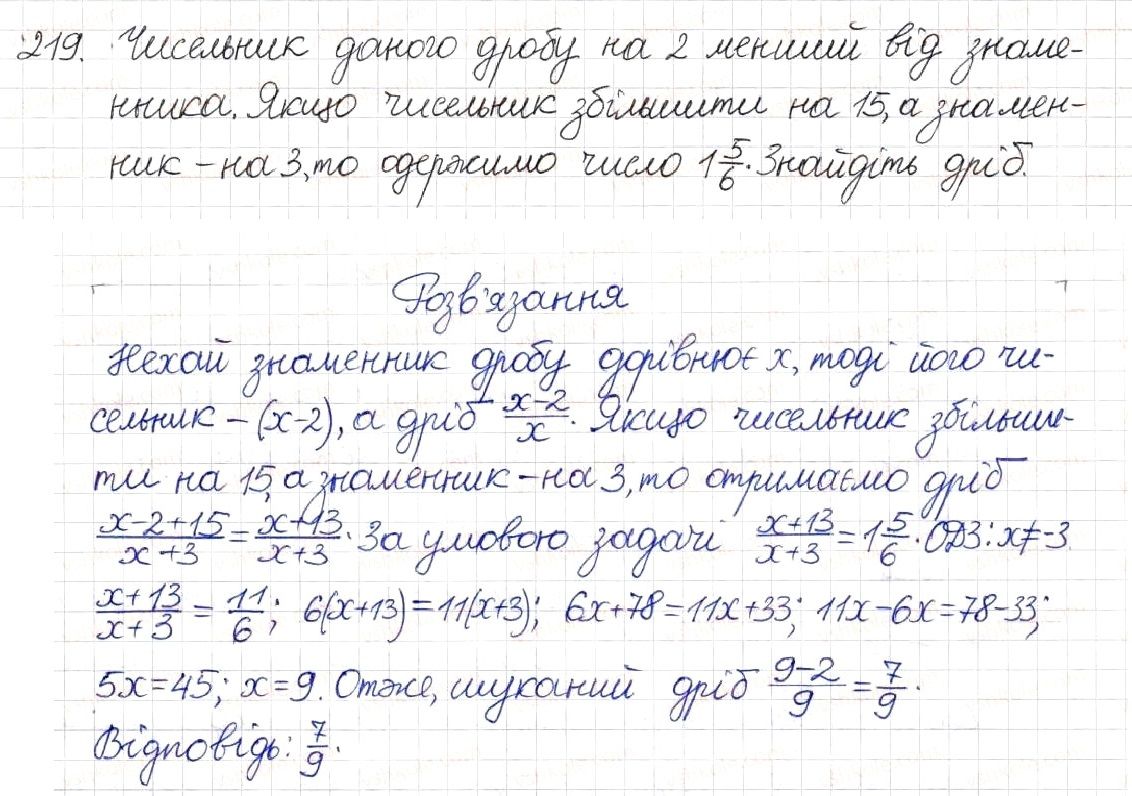 219. Чисельник даного дробу на 2 менший від знаме-
нника. Якщо чисельник збільшити на 15, а знамен-
ник – на 3, то одержимо число 1 5/6. Знайдіть дріб.
Розв'язання
Нехай знаменник дробу дорівнює x, тоді його чи-
сельник – (x-2), а дріб (x-2)/x. Якщо чисельник збільши-
ти на 15, а знаменник – на 3, то отримаємо дріб
(x-2+15)/(x+3) = (x+13)/(x+3). За умовою задачі (x+13)/(x+3) = 1 5/6. ОДЗ: x≠-3
(x+13)/(x+3) = 11/6; 6(x+13)=11(x+3); 6x+78=11x+33; 11x-6x=78-33;
5x=45; x=9. Отже, шуканий дріб (9-2)/9 = 7/9.
Відповідь: 7/9.